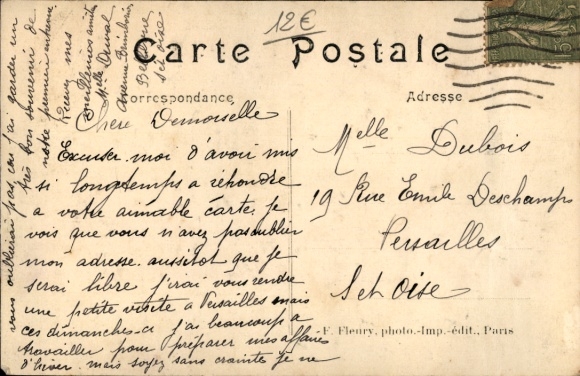 12€
Carte Postale
Correspondance
Adresse
Chere Demoiselle
Excuser moi d'avoir mis
si longtemps a rehondre
a votre aimable carte. Je
vois que vous n'avez pas oublier
mon adresse. aussitot que je
serai libre j'irai vous rendre
une petite visite a Versailles mais
ces dimanches-ci j'ai beaucoup a
travailler pour préparer mes affaires
d'hiver. mais soyez sans crainte je ne
vous oublierai pas, car j'ai garder un
très bon souvenir de
notre premier
Recevez mes
meilleures amitiés
Melle Duval
Avenue
Set oise
Melle Dubois
19 Rue Emile Deschamps
Versailles
Set Oise
F. Fleury, photo.-Imp.-édit., Paris